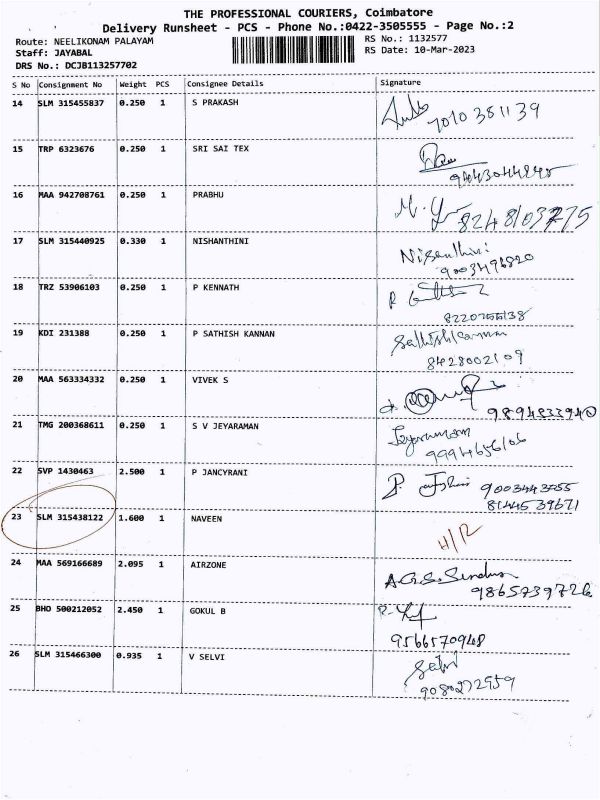 THE PROFESSIONAL COURIERS, Coimbatore
Delivery Runsheet - PCS - Phone No.:0422-3505555 - Page No.:2
Route: NEELIKONAM PALAYAM
RS No.: 1132577
Staff: JAYABAL
RS Date: 10-Mar-2023
DRS No.: DCJB113257702
S No Consignment No Weight PCS Consignee Details Signature
14 SLM 315455837 0.250 1 S PRAKASH
7010351139
15 TRP 6323676 0.250 1 SRI SAI TEX
16 MAA 942708761 0.250 1 PRABHU
8248103775
17 SLM 315440925 0.330 1 NISHANTHINI
Nisanthini
9003496820
18 TRZ 53906103 0.250 1 P KENNATH
19 KDI 231388 0.250 1 P SATHISH KANNAN
Sathishkannan
8428002109
20 MAA 563334332 0.250 1 VIVEK S
9894833940
21 TMG 200368611 0.250 1 S V JEYARAMAN
Jeyaraman
9994656106
22 SVP 1430463 2.500 1 P JANCYRANI
9003443755
8144539671
23 SLM 315438122 1.600 1 NAVEEN
H/R
24 MAA 569166689 2.095 1 AIRZONE
9865739726
25 BHO 500212052 2.450 1 GOKUL B
9566570948
26 SLM 315466300 0.935 1 V SELVI
Selvi
9080272959